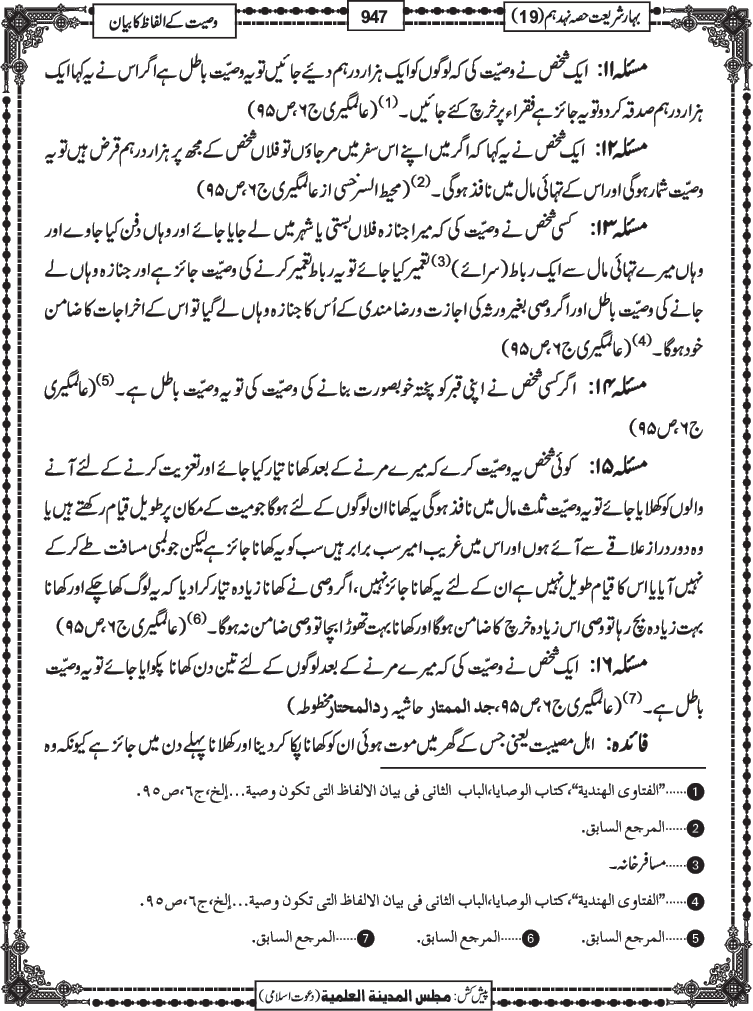 بہارِ شریعت حصہ نہدہم (19)
947
وصیت کے الفاظ کا بیان
مسئلہ ۱۱: ایک شخص نے وصیّت کی کہ لوگوں کو ایک ہزار درہم دیئے جائیں تو یہ وصیّت باطل ہے اگر اس نے یہ کہا ایک
ہزار درہم صدقہ کردو تو یہ جائز ہے فقراء پر خرچ کئے جائیں۔(1) (عالمگیری ج۶،ص۹۵)
مسئلہ ۱۲: ایک شخص نے یہ کہا کہ اگر میں اپنے اس سفر میں مرجاؤں تو فلاں شخص کے مجھ پر ہزار درہم قرض ہیں تو یہ
وصیّت شمار ہوگی اور اس کے تہائی مال میں نافذ ہوگی۔(2) (محیط السرخسی از عالمگیری ج۶،ص۹۵)
مسئلہ ۱۳: کسی شخص نے وصیّت کی کہ میرا جنازہ فلاں بستی یا شہر میں لے جایا جائے اور وہاں دفن کیا جاوے اور
وہاں میرے تہائی مال سے ایک رباط (سرائے)(3) تعمیر کیا جائے تو یہ رباط تعمیر کرنے کی وصیّت جائز ہے اور جنازہ وہاں لے
جانے کی وصیّت باطل اور اگر وصی بغیر ورثہ کی اجازت و رضا مندی کے اُس کا جنازہ وہاں لے گیا تو اس کے اخراجات کا ضامن
خود ہوگا۔(4) (عالمگیری ج۶،ص۹۵)
مسئلہ ۱۴: اگر کسی شخص نے اپنی قبر کو پختہ خوبصورت بنانے کی وصیّت کی تو یہ وصیّت باطل ہے۔(5) (عالمگیری
ج۶،ص۹۵)
مسئلہ ۱۵: کوئی شخص یہ وصیّت کرے کہ میرے مرنے کے بعد کھانا تیار کیا جائے اور تعزیت کرنے کے لئے آنے
والوں کو کھلایا جائے تو یہ وصیّت ثلث مال میں نافذ ہوگی یہ کھانا ان لوگوں کے لئے ہوگا جو میت کے مکان پر طویل قیام رکھتے ہیں یا
وہ دور دراز علاقے سے آئے ہوں اور اس میں غریب امیر سب برابر ہیں سب کو یہ کھانا جائز ہے لیکن جو لمبی مسافت طے کر کے
نہیں آیا یا اس کا قیام طویل نہیں ہے ان کے لئے یہ کھانا جائز نہیں، اگر وصی نے کھانا زیادہ تیار کرا دیا کہ یہ لوگ کھا چکے اور کھانا
بہت زیادہ بچ رہا تو وصی اس زیادہ خرچ کا ضامن ہوگا اور کھانا بہت تھوڑا بچا تو وصی ضامن نہ ہوگا۔(6) (عالمگیری ج۶،ص۹۵)
مسئلہ ۱۶: ایک شخص نے وصیّت کی کہ میرے مرنے کے بعد لوگوں کے لئے تین دن کھانا پکوایا جائے تو یہ وصیّت
باطل ہے۔(7) (عالمگیری ج۶،ص۹۵، جد الممتار حاشیہ ردالمحتار مخطوطہ)
فائدہ: اہل مصیبت یعنی جس کے گھر میں موت ہوئی ان کو کھانا پکا کر دینا اور کھلانا پہلے دن میں جائز ہے کیونکہ وہ
1......"الفتاوى الهندية"،كتاب الوصايا،الباب الثانى فى بيان الالفاظ التى تكون وصية...إلخ،ج٦،ص٩٥.
2......المرجع السابق.
3......مسافر خانہ۔
4......"الفتاوى الهندية"،كتاب الوصايا،الباب الثانى فى بيان الالفاظ التى تكون وصية...إلخ،ج٦،ص٩٥.
5......المرجع السابق. 6......المرجع السابق. 7......المرجع السابق.
پیش کش: مجلس المدینۃ العلمیۃ (دعوت اسلامی)